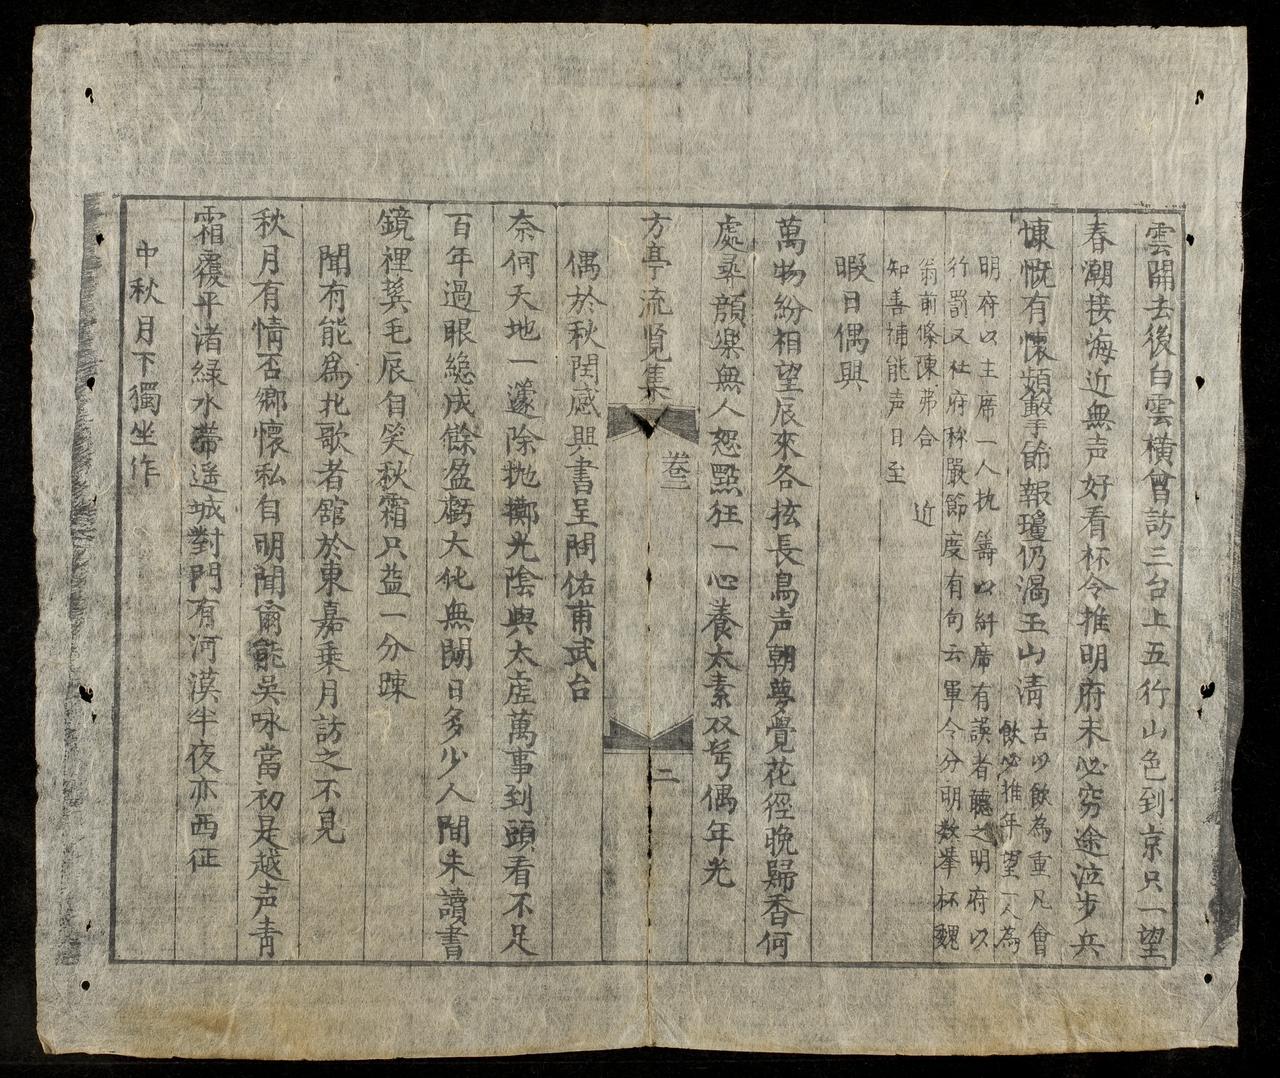 雲開去後白雲横曾訪三台上五行山色到京只一望
春潮接海近無声好看杯令推明府未必窮途泣步兵
慷慨有懷頻擊節報瓊仍渴玉山淸
古以飲為重凡會
飲必推年望一人為
明府以主席一人执籌以糾席有誤者聽之明府以
行罰又杜府称嚴節度有句云軍令分明数举杯魏
翁前條陳弗合 近
知善補能声日至
暇日偶興
萬物紛相望辰來各抟長鳥声朝夢覺花徑晚歸香何
處尋顔樂無人怨點狂一心養太素双髩偶年光
方亭流覧集
卷二
二
偶於秋閏感興書呈閒佑甫武台
奈何天地一籧除抛擲光陰與太虛萬事到頭看不足
百年過眼緫成餘盈虧大化無閒日多少人間未讀書
鏡裡䰇毛辰自笑秋霜只益一分踈
聞有能爲北歌者舘於東嘉乘月訪之不見
秋月有情否鄉懷私自明聞爾能吳咏當初是越声靑
霜覆平渚綠水帶遥城對門有河漠半夜亦西征
中秋月下獨坐作